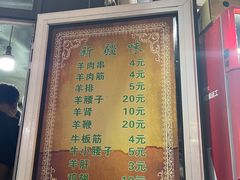 新疆味
羊肉串 4元
羊肉筋 4元
羊排 5元
羊腰子 20元
羊肾 10元
羊鞭 20元
牛板筋 4元
牛小腰子 5元
羊肝 3元